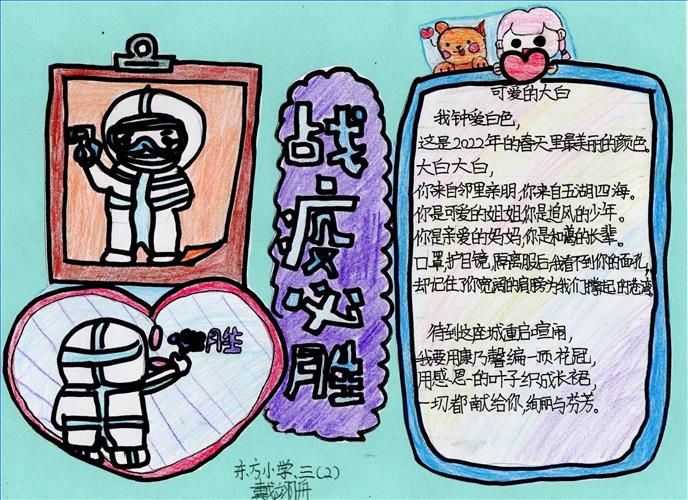 战疫必胜
必胜
可爱的大白
我钟爱白色,
这是2022年的春天里最美丽的颜色。
大白大白,
你来自邻里亲朋,你来自五湖四海。
你是可爱的姐姐,你是追风的少年。
你是亲爱的妈妈,你是和蔼的长辈。
口罩,护目镜,隔离服后我看不到你的面孔,
却记住了你宽阔的肩膀为我们撑起的港湾
待到这座城重启喧闹,
我要用康乃馨编一顶花冠,
用感恩的叶子织成长裙,
一切都献给你,绚丽与芬芳。
东方小学、三(2)